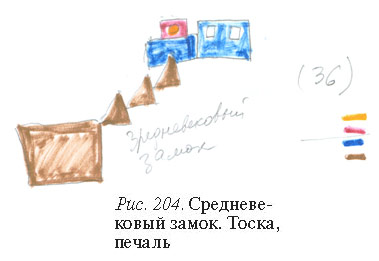 (36)
средневековый
замок
Рис. 204. Средневе-
ковый замок. Тоска,
печаль